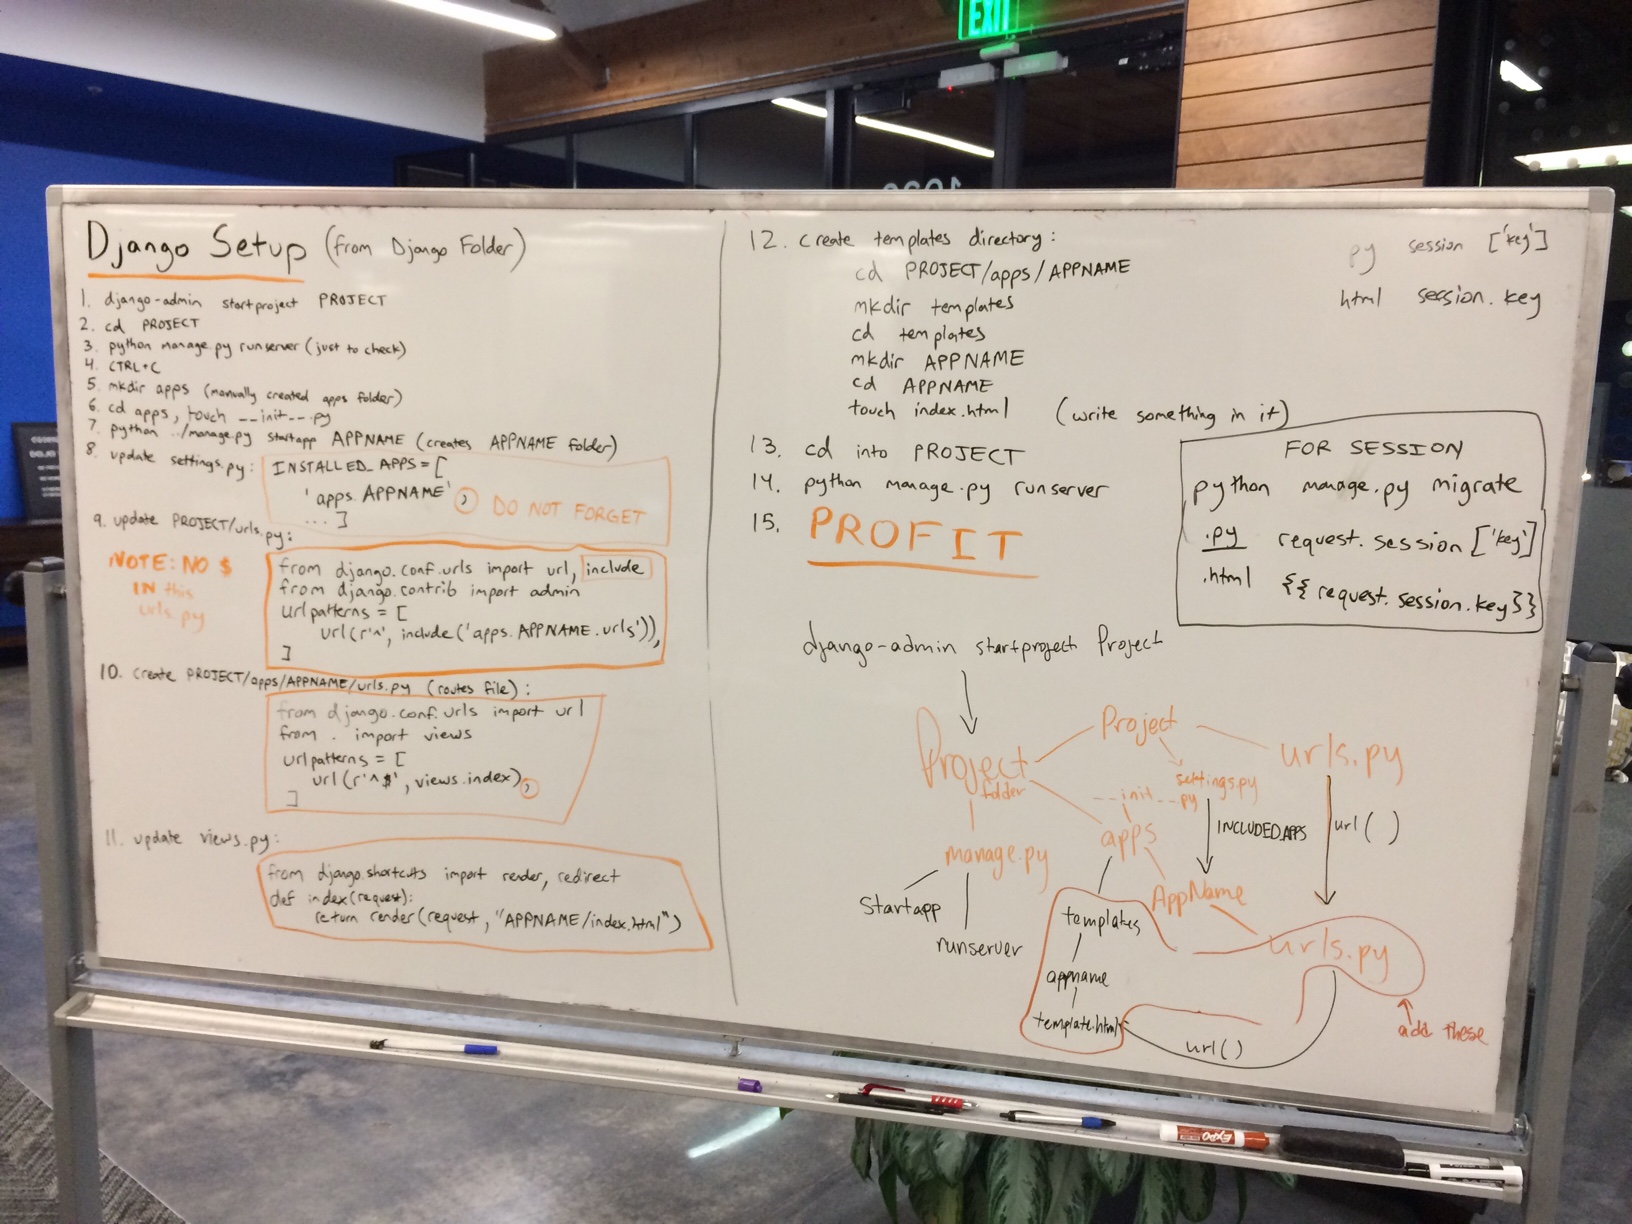 EXIT
Django Setup (from Django Folder)
1. django-admin startproject PROJECT
2. cd PROJECT
3. python manage.py runserver (just to check)
4. CTRL+C
5. mkdir apps (manually created apps folder)
6. cd apps, touch __init__.py
7. python ../manage.py startapp APPNAME (creates APPNAME folder)
8. update settings.py:
INSTALLED_APPS = [
'apps.APPNAME' , DO NOT FORGET
... ]
9. update PROJECT/urls.py:
NOTE: NO $
IN this
urls.py
from django.conf.urls import url, include
from django.contrib import admin
urlpatterns = [
url(r'^', include('apps.APPNAME.urls')),
]
10. create PROJECT/apps/APPNAME/urls.py (routes file):
from django.conf.urls import url
from . import views
urlpatterns = [
url(r'^$', views.index),
]
11. update views.py:
from django.shortcuts import render, redirect
def index(request):
return render(request, "APPNAME/index.html")
12. create templates directory:
cd PROJECT/apps/APPNAME
mkdir templates
cd templates
mkdir APPNAME
cd APPNAME
touch index.html (write something in it)
13. cd into PROJECT
14. python manage.py runserver
15. PROFIT
py session ['key']
html session.key
FOR SESSION
python manage.py migrate
.py request.session ['key']
.html {{ request.session.key }}
django-admin startproject Project
Project
folder
Project
urls.py
settings.py
__init__.py
apps
INCLUDED.APPS
url ( )
manage.py
Startapp
runserver
AppName
templates
urls.py
appname
template.html
url ( )
add these
EXPO